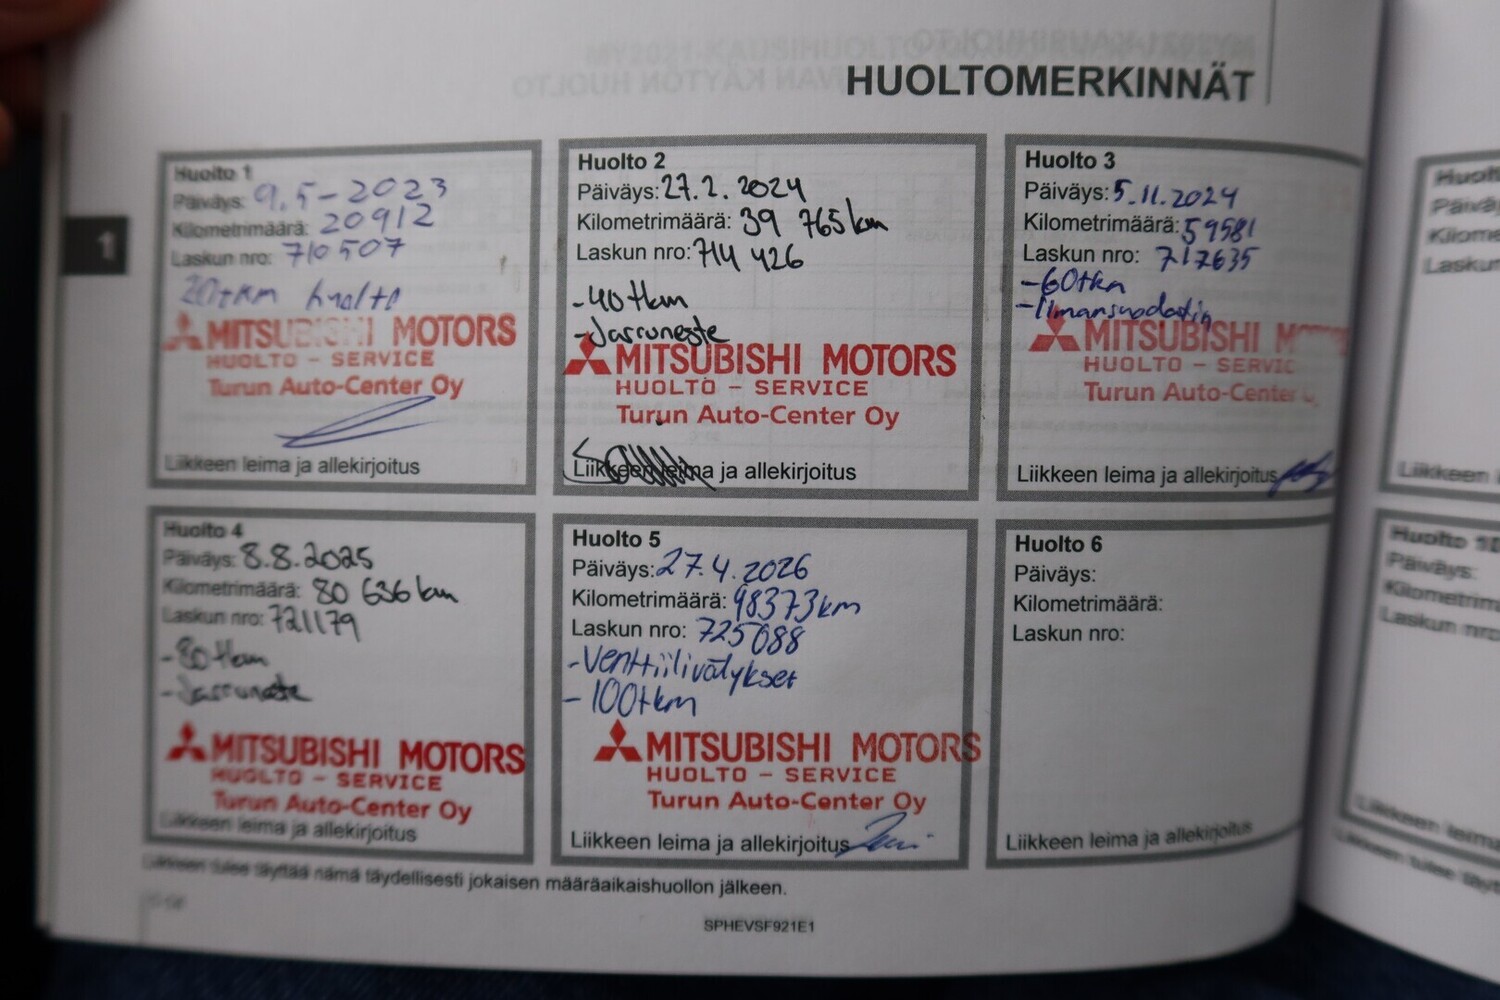 HUOLTOMERKINNÄT
Huolto 1
Päiväys: 9.5-2023
Kilometrimäärä: 20912
Laskun nro: 710507
20tkm huolto
MITSUBISHI MOTORS
HUOLTO - SERVICE
Turun Auto-Center Oy
Liikkeen leima ja allekirjoitus
Huolto 2
Päiväys: 27.2.2024
Kilometrimäärä: 39 765 km
Laskun nro: 714 426
-40tkm
-Jarruneste
MITSUBISHI MOTORS
HUOLTO - SERVICE
Turun Auto-Center Oy
Liikkeen leima ja allekirjoitus
Huolto 3
Päiväys: 5.11.2024
Kilometrimäärä: 59581
Laskun nro: 717635
-60tkm
-Ilmansuodatin
MITSUBISHI
HUOLTO - SERVIC
Turun Auto-Center
Liikkeen leima ja allekirjoitus
Huolto 4
Päiväys: 8.8.2025
Kilometrimäärä: 80 636 km
Laskun nro: 721179
-80tkm
-Jarruneste
MITSUBISHI MOTORS
HUOLTO - SERVICE
Turun Auto-Center Oy
Liikkeen leima ja allekirjoitus
Huolto 5
Päiväys: 27.4.2026
Kilometrimäärä: 98373km
Laskun nro: 725088
-Venttiilivälykset
-100tkm
MITSUBISHI MOTORS
HUOLTO - SERVICE
Turun Auto-Center Oy
Liikkeen leima ja allekirjoitus
Huolto 6
Päiväys:
Kilometrimäärä:
Laskun nro:
Liikkeen leima ja allekirjoitus
Liikkeen tulee täyttää nämä täydellisesti jokaisen määräaikaishuollon jälkeen.
SPHEVSF921E1
1